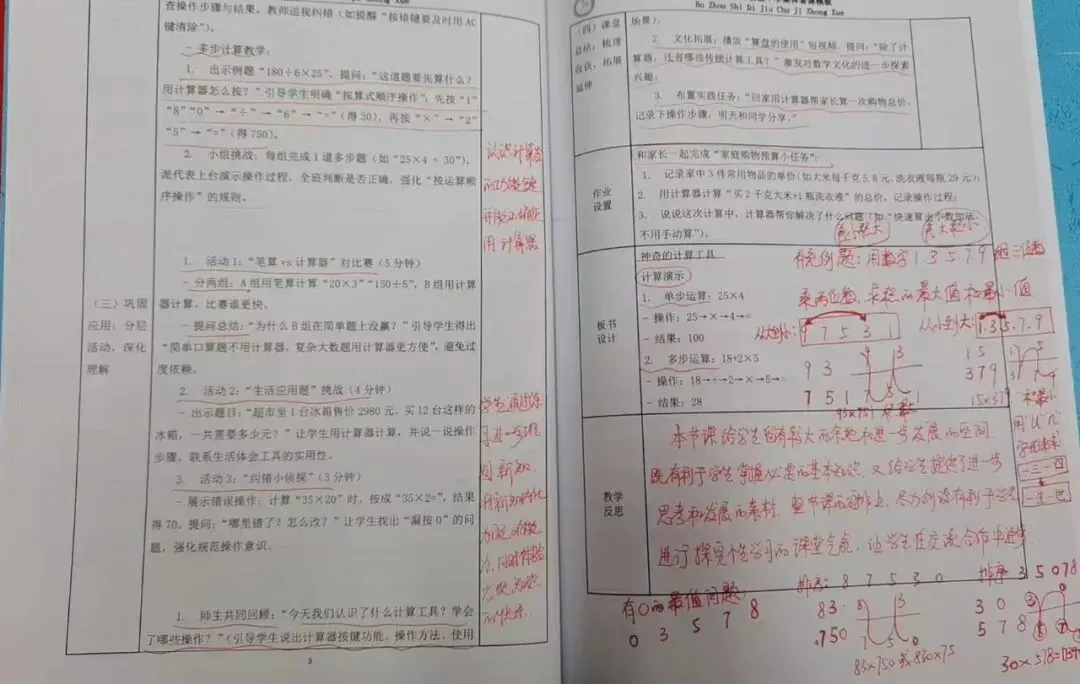 查操作步骤与结果、教师巡视纠错（如提醒“按错键要及时用 AC
键清除”）。
- 多步计算教学：
1. 出示例题“180÷6×25”，提问：“这道题要先算什么？
用计算器怎么按？”引导学生明确“按算式顺序操作”，先按“1”
“8”“0”→“÷”→“6”→“=”（得30），再按“×”→“2”
“5”→“=”（得750）。
2. 小组挑战：每组完成1道多步题（如“25×4 + 30”），
派代表上台演示操作过程，全班判断是否正确，强化“按运算顺
序操作”的规则。
认识计算器
的功能键
用计算器
（三）巩固
应用：分层
活动，深化
理解
1. 活动1：“笔算 vs 计算器”对比赛（5分钟）
- 分两组：A组用笔算计算“20×3”“150÷5”，B组用计算
器计算，比赛谁更快。
- 提问总结：“为什么B组在简单题上没赢？”引导学生得出
“简单口算题不用计算器，复杂大数题用计算器更方便”，避免过
度依赖。
2. 活动2：“生活应用题”挑战（4分钟）
- 出示题目：“超市里1台冰箱售价2980元，买12台这样的
冰箱，一共需要多少元？”让学生用计算器计算，并说一说操作
步骤，联系生活体会工具的实用性。
3. 活动3：“纠错小侦探”（3分钟）
- 展示错误操作：计算“35×20”时，按成“35×2=”，结果
得70。提问：“哪里错了？怎么改？”让学生找出“漏按0”的问
题，强化规范操作意识。
学生通过练
习进一步巩
固新知
的快乐.
1. 师生共同回顾：“今天我们认识了什么计算工具？学会
了哪些操作？”（引导学生说出计算器按键功能、操作方法、使用
5
Bo Zhou Shi Di Jiu Chu Ji Zhong Xue
（四）课堂
总结：梳理
收获，拓展
延伸
场景）。
2. 文化拓展：播放“算盘的使用”短视频，提问：“除了计
算器，还有哪些传统计算工具？”激发对数学文化的进一步探索
兴趣。
3. 布置实践任务：“回家用计算器帮家长算一次购物总价，
记录下操作步骤，明天和同学分享。”
作业
设置
和家长一起完成“家庭购物预算小任务”：
1. 记录家中3件常用物品的单价（如大米每千克5.8元、洗衣液每瓶29元）；
2. 用计算器计算“买2千克大米+1瓶洗衣液”的总价，记录操作过程；
3. 说说这次计算中，计算器帮你解决了什么问题（如“快速算出小数加法，
不用手动算”）。
板书
设计
神奇的计算工具
计算演示
1. 单步运算：25×4
- 操作：25→×→4→=
- 结果：100
2. 多步运算：18+2×5
- 操作：18→+→2→×→5→=
- 结果：28
例题：用数字1.3 5.7.9组三位数
乘两位数，求积的最大值和最小值
从大到小：9 7 5 3 1
从小到大：1.3 5.7.9
9 3
7 5 1
1 5
3 7 9
教学
反思
本节课给学生留有较大的余地和进一步发展的空间
既有利于学生掌握必需的基本知识，又给学生提供了进一步
思考和发展的素材.
进行探究性学习的课堂气氛，让学生在交流合作中进步
有0的最值问题
0 3 5 7 8
排序：8 7 5 3 0
83
750
83×750 或 830×75
排序 3 5 0 7 8
3 0
5 7 8